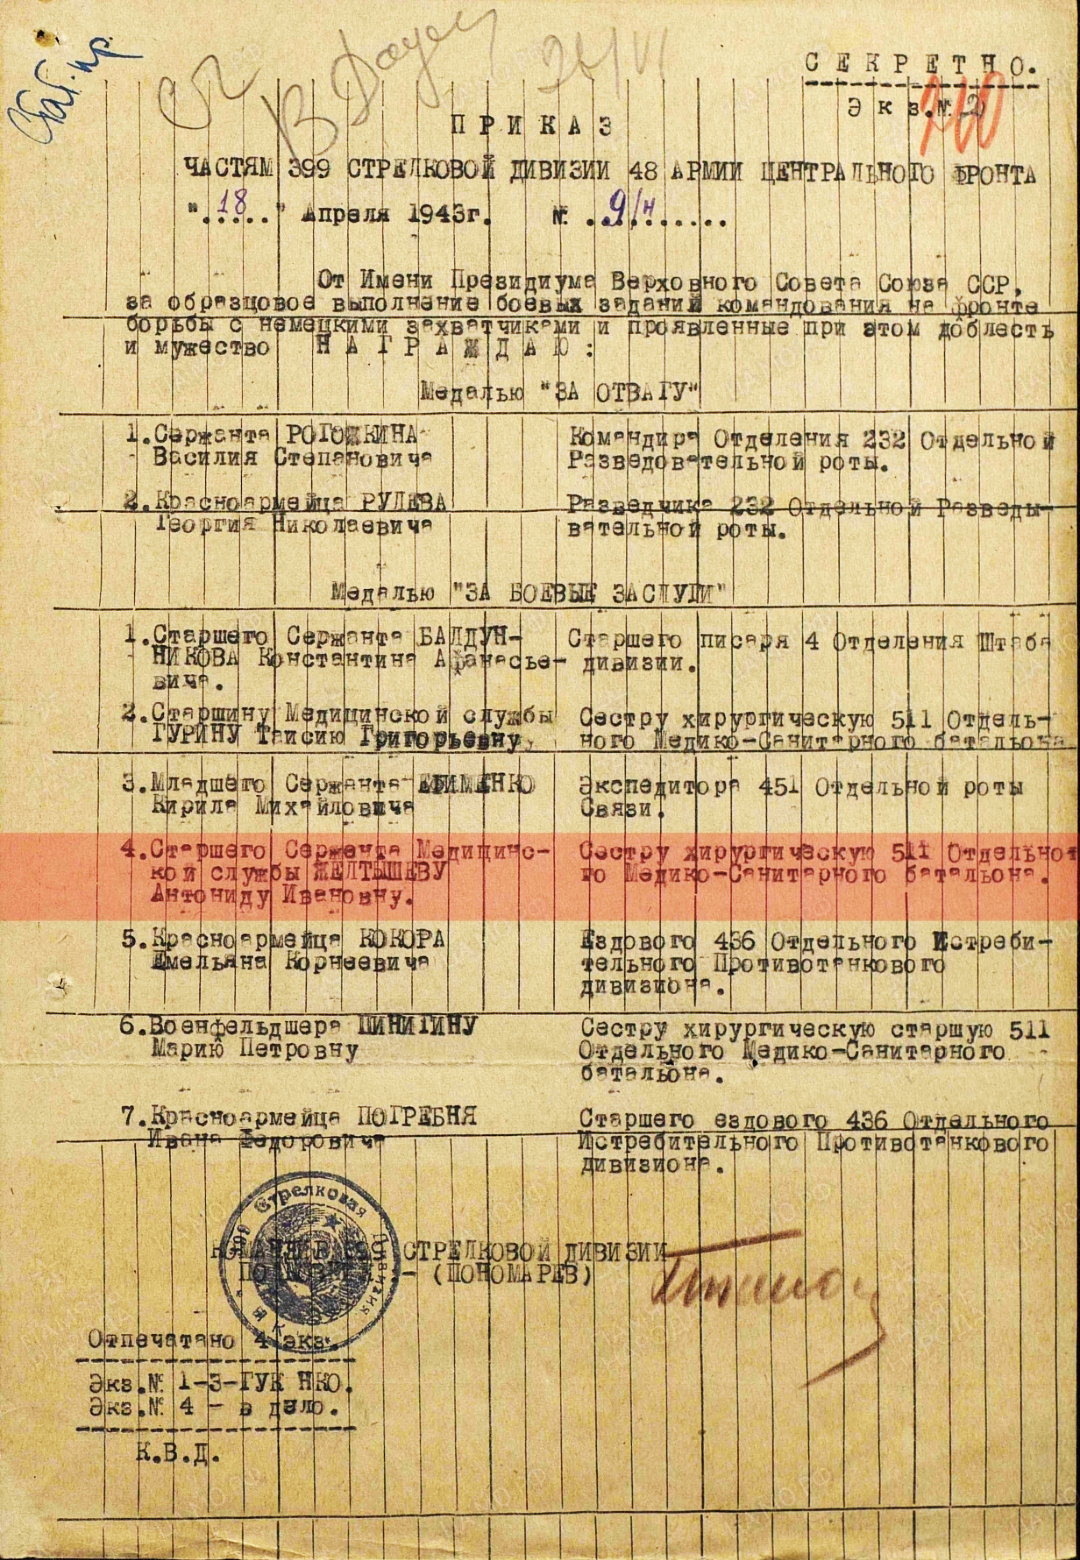 СЕКРЕТНО.
Экз.№ 2
ПРИКАЗ
ЧАСТЯМ 399 СТРЕЛКОВОЙ ДИВИЗИИ 48 АРМИИ ЦЕНТРАЛЬНОГО ФРОНТА
"18" Апреля 1943г. № 9/н
От Имени Президиума Верховного Совета Союза ССР,
за образцовое выполнение боевых заданий командования на фронте
борьбы с немецкими захватчиками и проявленные при этом доблесть
и мужество НАГРАЖДАЮ:
Медалью "ЗА ОТВАГУ"
1.Сержанта РОГОЖКИНА Командира Отделения 232 Отдельной
Василия Степановича Разведовательной роты.
2.Красноармейца РУЛЕВА Разведчика 232 Отдельной Разведы-
Георгия Николаевича вательной роты.
Медалью "ЗА БОЕВЫЕ ЗАСЛУГИ"
1.Старшего Сержанта БАЛДУН- Старшего писаря 4 Отделения Штаба
НИКОВА Константина Афанасье- дивизии.
вича.
2.Старшину Медицинской службы Сестру хирургическую 511 Отдель-
ГУРИНУ Таисию Григорьевну ного Медико-Санитарного батальона
3.Младшего Сержанта ЕФИМЕНКО Экспедитора 451 Отдельной роты
Кирила Михайловича Связи.
4.Старшего Сержанта Медицинс- Сестру хирургическую 511 Отдельно
кой службы ЖЕЛТЫШЕВУ го Медико-Санитарного батальона.
Антониду Ивановну.
5.Красноармейца КОКОРА Ездового 436 Отдельного Истреби-
Емельяна Корнеевича тельного Противотанкового
дивизиона.
6.Военфельдшера ПИНИГИНУ Сестру хирургическую старшую 511
Марию Петровну Отдельного Медико-Санитарного
батальона.
7.Красноармейца ПОГРЕБНЯ Старшего ездового 436 Отдельного
Ивана Федоровича Истребительного Противотанкового
дивизиона.
399 Стрелковая Дивизия
КОМАНДИР 399 СТРЕЛКОВОЙ ДИВИЗИИ
ПОЛКОВНИК - (ПОНОМАРЕВ)
Отпечатано 4 экз.
Экз.№ 1-3-ГУК НКО.
Экз.№ 4 - в дело.
К.В.Д.